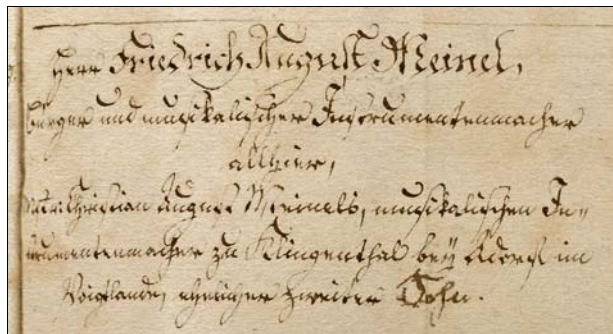 Herr Friedrich August Meinel,
Bürger und musikalischer Instrumentenmacher
allhier,
Christian August Meinels, musikalischen In-
strumentenmacher zu Klingenthal bey Adorf im
Voigtlande, ehelicher zweiter Sohn.